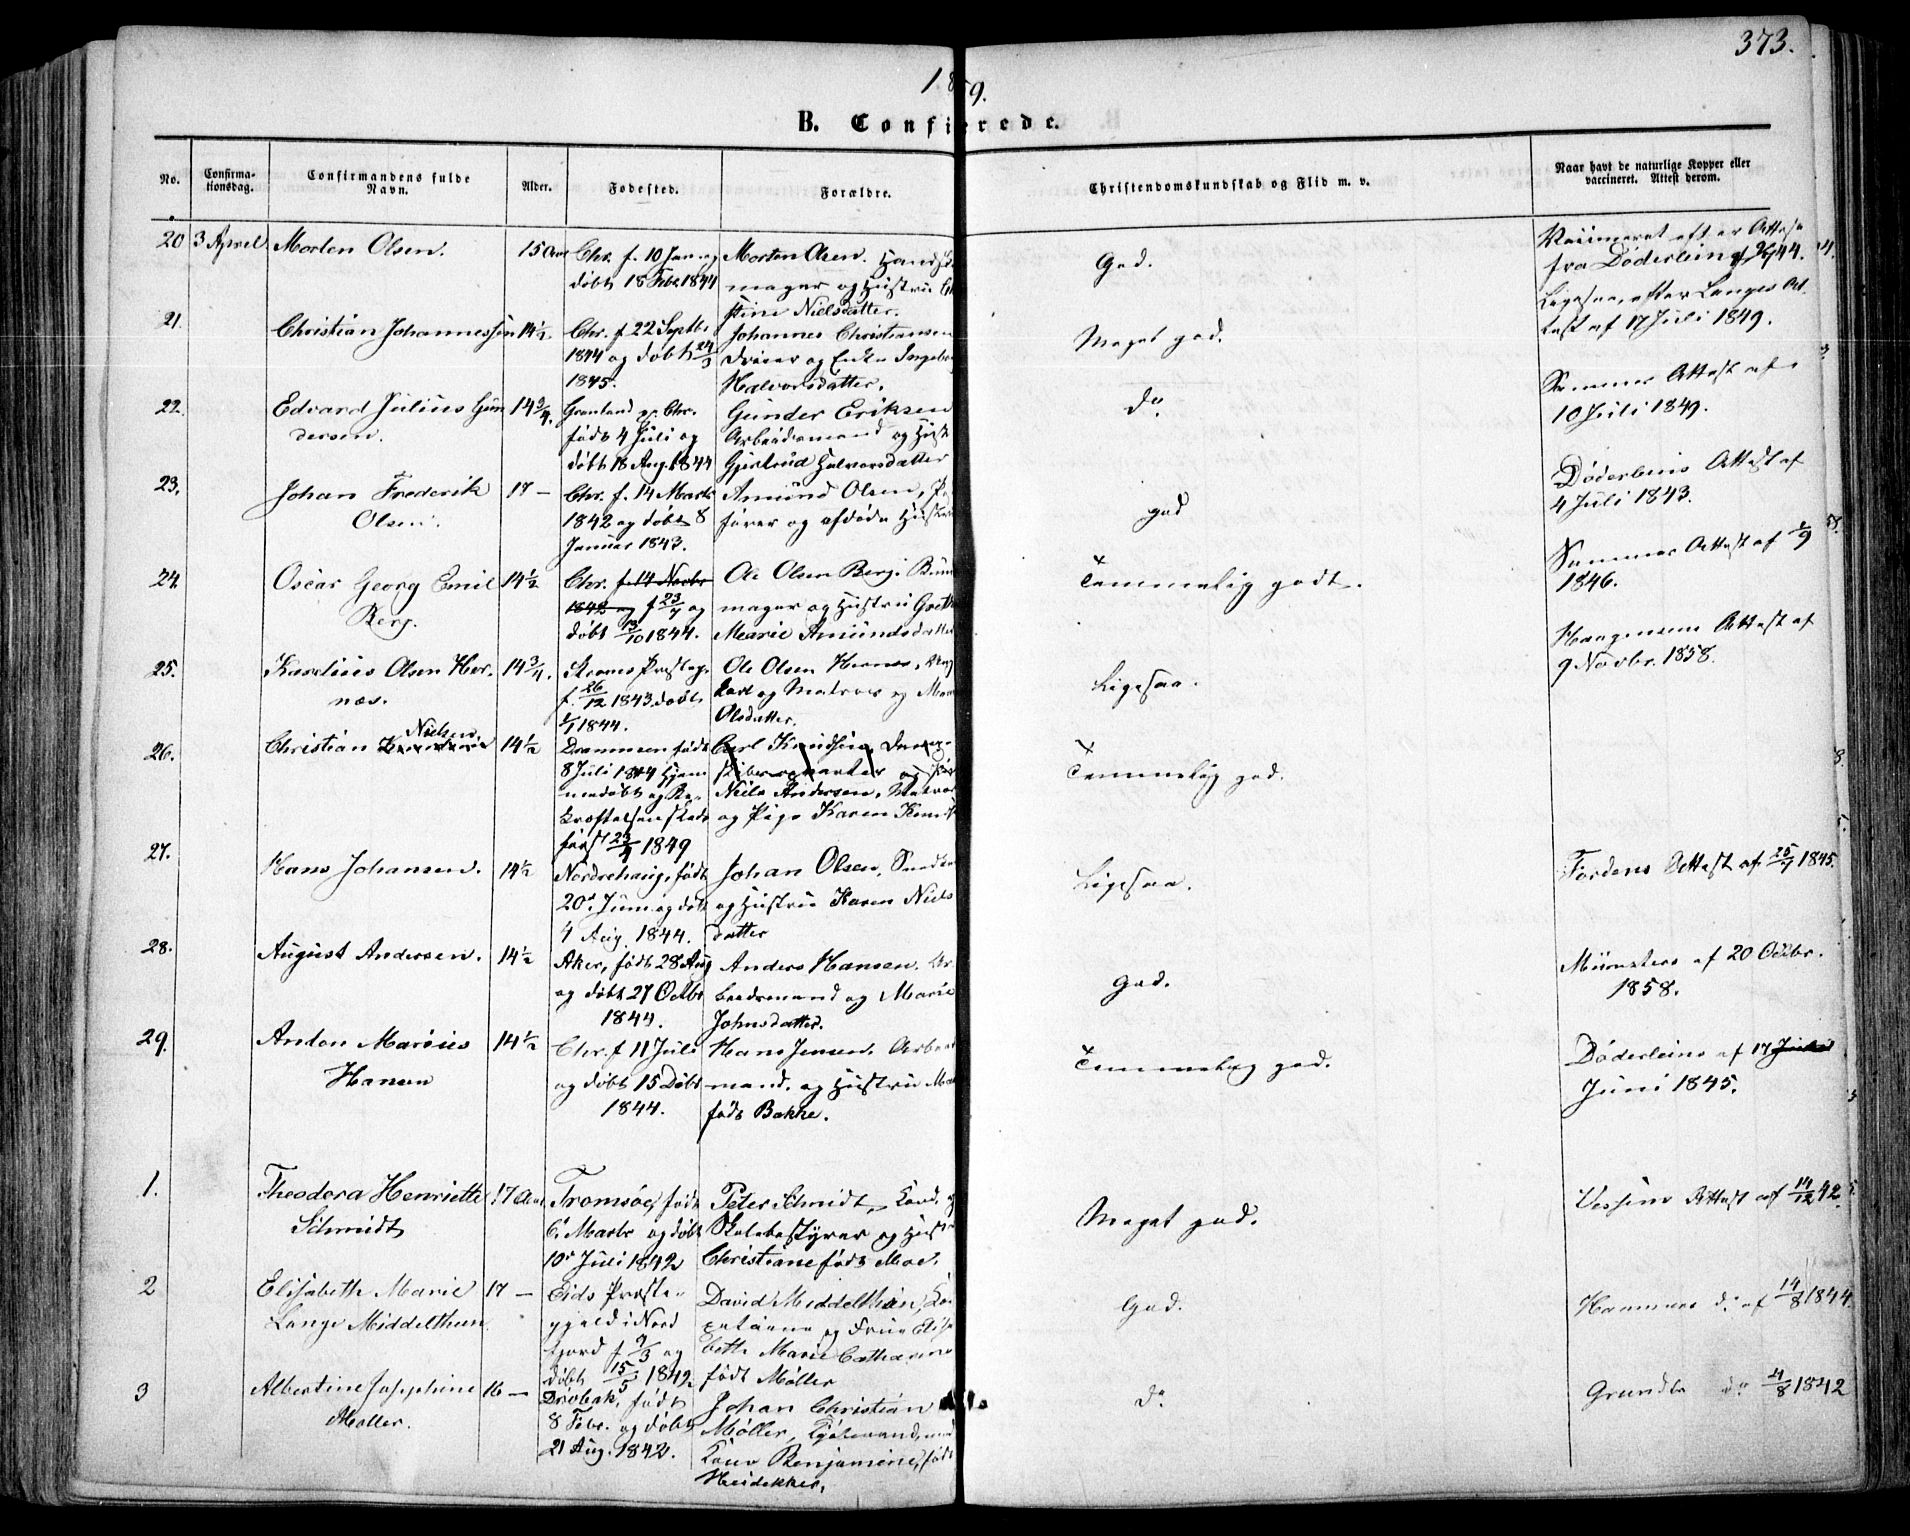 373.
1859.
B. Confirerede.
No.
Confirma-
tionsdag.
Confirmandens fulde
Navn.
Alder.
Fødested.
Forældre.
Christendomskundskab og Flid m. v.
Naar havt de naturlige Kopper eller
vaccineret. Attest derom.
20 3 April Morten Olsen. 15 Aar
Chr. f. 10 Jan. og
døbt 18 Febr 1844
Morten Olsen. Handsk
mager og Hustru
stine Nielsdatter.
God.
Vaccineret efter Attest
fra Døderlein
21. Christian Johannessen 14½
Chr. f 22 Septbr.
1844 og døbt 24/3
1845.
Johannes Christiansen
Dreier og Enke Ingebor
Halvorsdatter.
Meget god.
Ligesaa, efter Langes At-
test af 17 Juli 1849.
22. Edvard Julius Gun 14¾
dersen.
Grønland p. Chr.
født 4 Juli og
døbt 18 Aug. 1844
Gunder Eriksen
Arbeidsmand og Hust
Gjertrud Halvorsdatter
do
Sammes Attest af
10 Juli 1849.
23. Johan Frederik 17 –
Olsen.
Chr. f. 14 Marts
1842 og døbt 8
Januar 1843.
Amund Olsen,
fører og afdøde Hustru
god
Døderleins Attest af
4 Juli 1843.
24. Oscar Georg Emil 14½
Berg.
Chr. f. 14 Novbr
1842 og f 23/7 og
døbt 13/10 1844.
Ole Olsen Berg.
mager og Hustru Grethe
Marie Amundsdatter
Temmelig godt.
Sammes Attest af
1846.
25. Karelius Olsen Her- 14¾
næs.
Præsteg.
f. 26/12 1843. døbt
1/1 1844.
Ole Olsen Hernæs,
og Matros og
Olsdatter.
Ligesaa.
Haagensens Attest af
9 Novbr. 1858.
26. Christian Nielsen. 14½
Drammen født
8 Juli 1844 Hjem
medøbt og Be-
kræftelsen skede
først 23/9 1849
Carl Knudsen,
Niels Andersen, Matros
og Pige Karen
Temmelig god.
27. Hans Johansen. 14½
Norderhaug, født
20de Juni og døbt
4 Aug. 1844.
Johan Olsen,
og Hustru Karen Niels
datter
Ligesaa.
Fordens Attest af 25/7 1845.
28. August Andersen. 14½
Aker, født 28 Aug
og døbt 27 Octbr
1844.
Anders Hansen. Ar
beidsmand og Marie
Johnsdatter.
God.
Münsters af 20 Octbr.
1858.
29. Anton Marius 14½
Hansen
Chr. f 11 Juli
og døbt 15 Dcbr
1844.
Hans Jensen. Arbeids
mand. og Hustru
født Bakke.
Temmelig god.
Døderleins af 17
Juni 1845.
1. Theodora Henriette 17 Aar
Schmidt
Tromsøe, født
6. Marts og døbt
10de Juli 1842
Peter Schmidt, Cand. og
Skolebestyrer og Hust
Christiane født Moe.
Meget god.
Vessens Attest af 14/12 42.
2 Elisabeth Marie 17 –
Lange Middelthun.
Eids Præste-
gjeld i Nord
fjord f 9/3 og
døbt 15/5 1842
David Middelthun, Ca
pitaine og Frue Elisa
beth Marie Catharine
født Møller
God.
Hammers do af 14/8 1844.
3 Albertine Josephine 16 –
Møller.
Drøbak, født
8 Febr. og døbt
21 Aug. 1842.
Johan Christian
Møller, Kjøbmand, med
Kone Benjamine, født
Heidekker.
do
do 24/8 1842